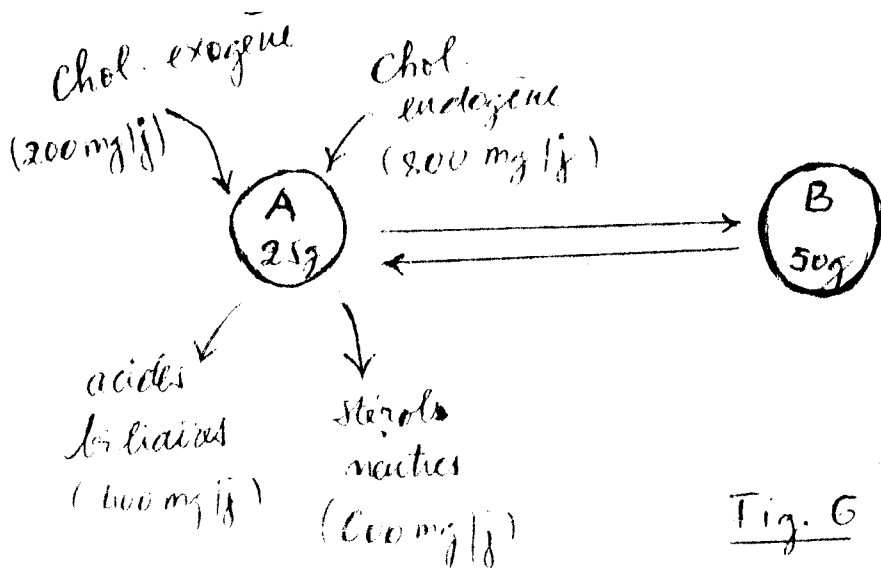 Chol. exogène
(200 mg/j)
Chol.
endogène
(800 mg/j)
A
25g
B
50g
acides
biliaires
(400 mg/j)
stérols
neutres
(600 mg/j)
Fig. 6